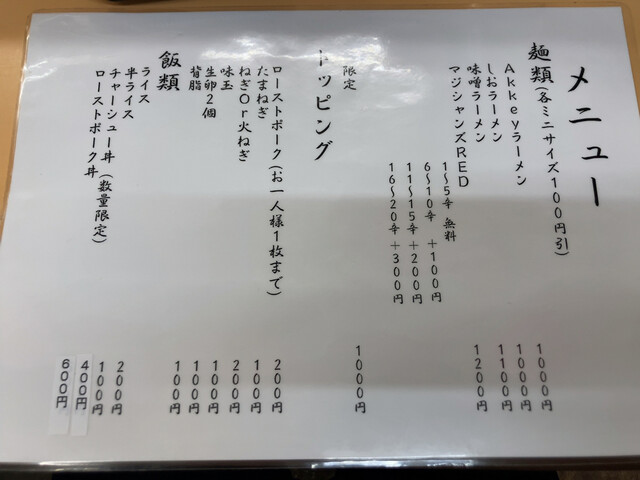 メニュー
麺類(各ミニサイズ100円引)
Akkeyラーメン 1000円
しおラーメン 1000円
味噌ラーメン 1100円
マジシャンズRED 1200円
1~5辛 無料
6~10辛 +100円
11~15辛 +200円
16~20辛 +300円
限定 1000円
トッピング
ローストポーク(お一人様1枚まで) 200円
たまねぎ 100円
ねぎOr火ねぎ 200円
味玉 100円
生卵2個 100円
背脂 100円
飯類
ライス 200円
半ライス 100円
チャーシュー丼(数量限定) 400円
ローストポーク丼 600円